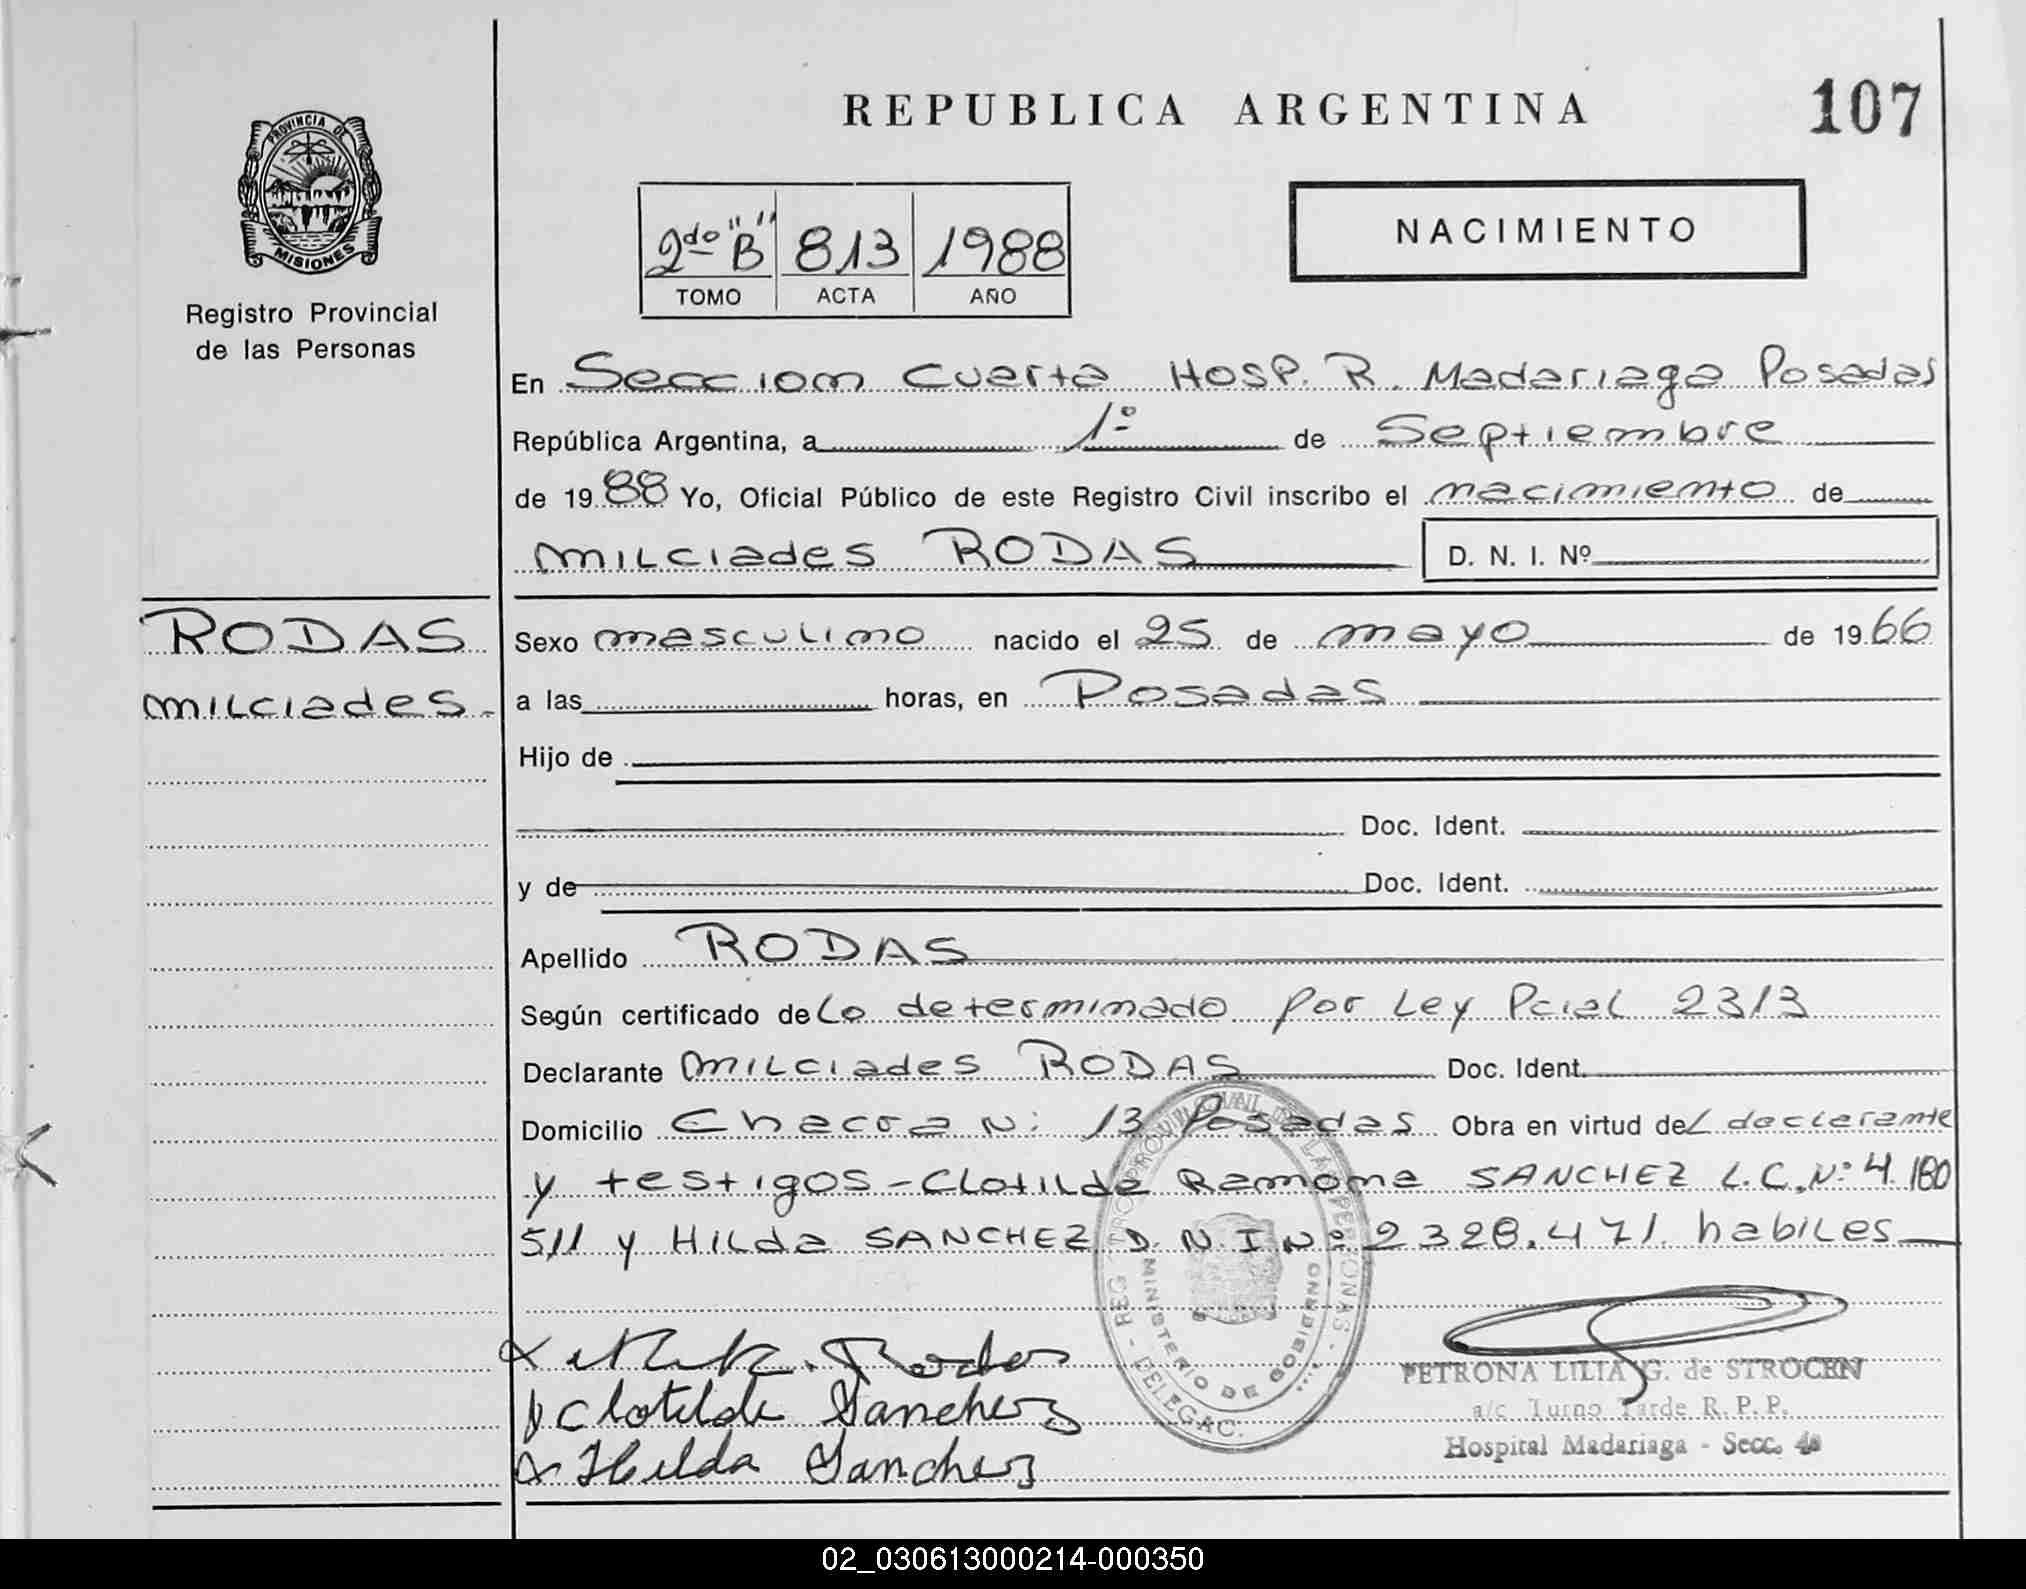 REPUBLICA ARGENTINA
107
PROVINCIA DE
MISIONES
Registro Provincial
de las Personas
2do "B" 813 1988
TOMO ACTA AÑO
NACIMIENTO
En Seccion Cuarta Hosp. R. Madariaga Posadas
República Argentina, a 1º de Septiembre
de 1988 Yo, Oficial Público de este Registro Civil inscribo el nacimiento de
milciades RODAS
D. N. I. Nº
RODAS
milciades.-
Sexo masculino nacido el 25 de mayo de 1966
a las horas, en Posadas
Hijo de
Doc. Ident.
y de Doc. Ident.
Apellido RODAS
Según certificado de Lo determinado por Ley Pcial 2313
Declarante milciades RODAS Doc. Ident.
Domicilio Chacra N: 13 Posadas Obra en virtud del declarante
y testigos - Clotilde Ramona SANCHEZ L.C. Nº 4.180
511 y Hilda SANCHEZ D.N.I Nº 2328.471. habiles
REG. PROVINCIAL DE LAS PERSONAS - DELEGAC.
MINISTERIO DE GOBIERNO
Rodas
Clotilde Sanchez
Hilda Sanchez
PETRONA LILIA G. de STROCEN
a/c Turno Tarde R. P. P.
Hospital Madariaga - Secc. 4a
02_030613000214-000350